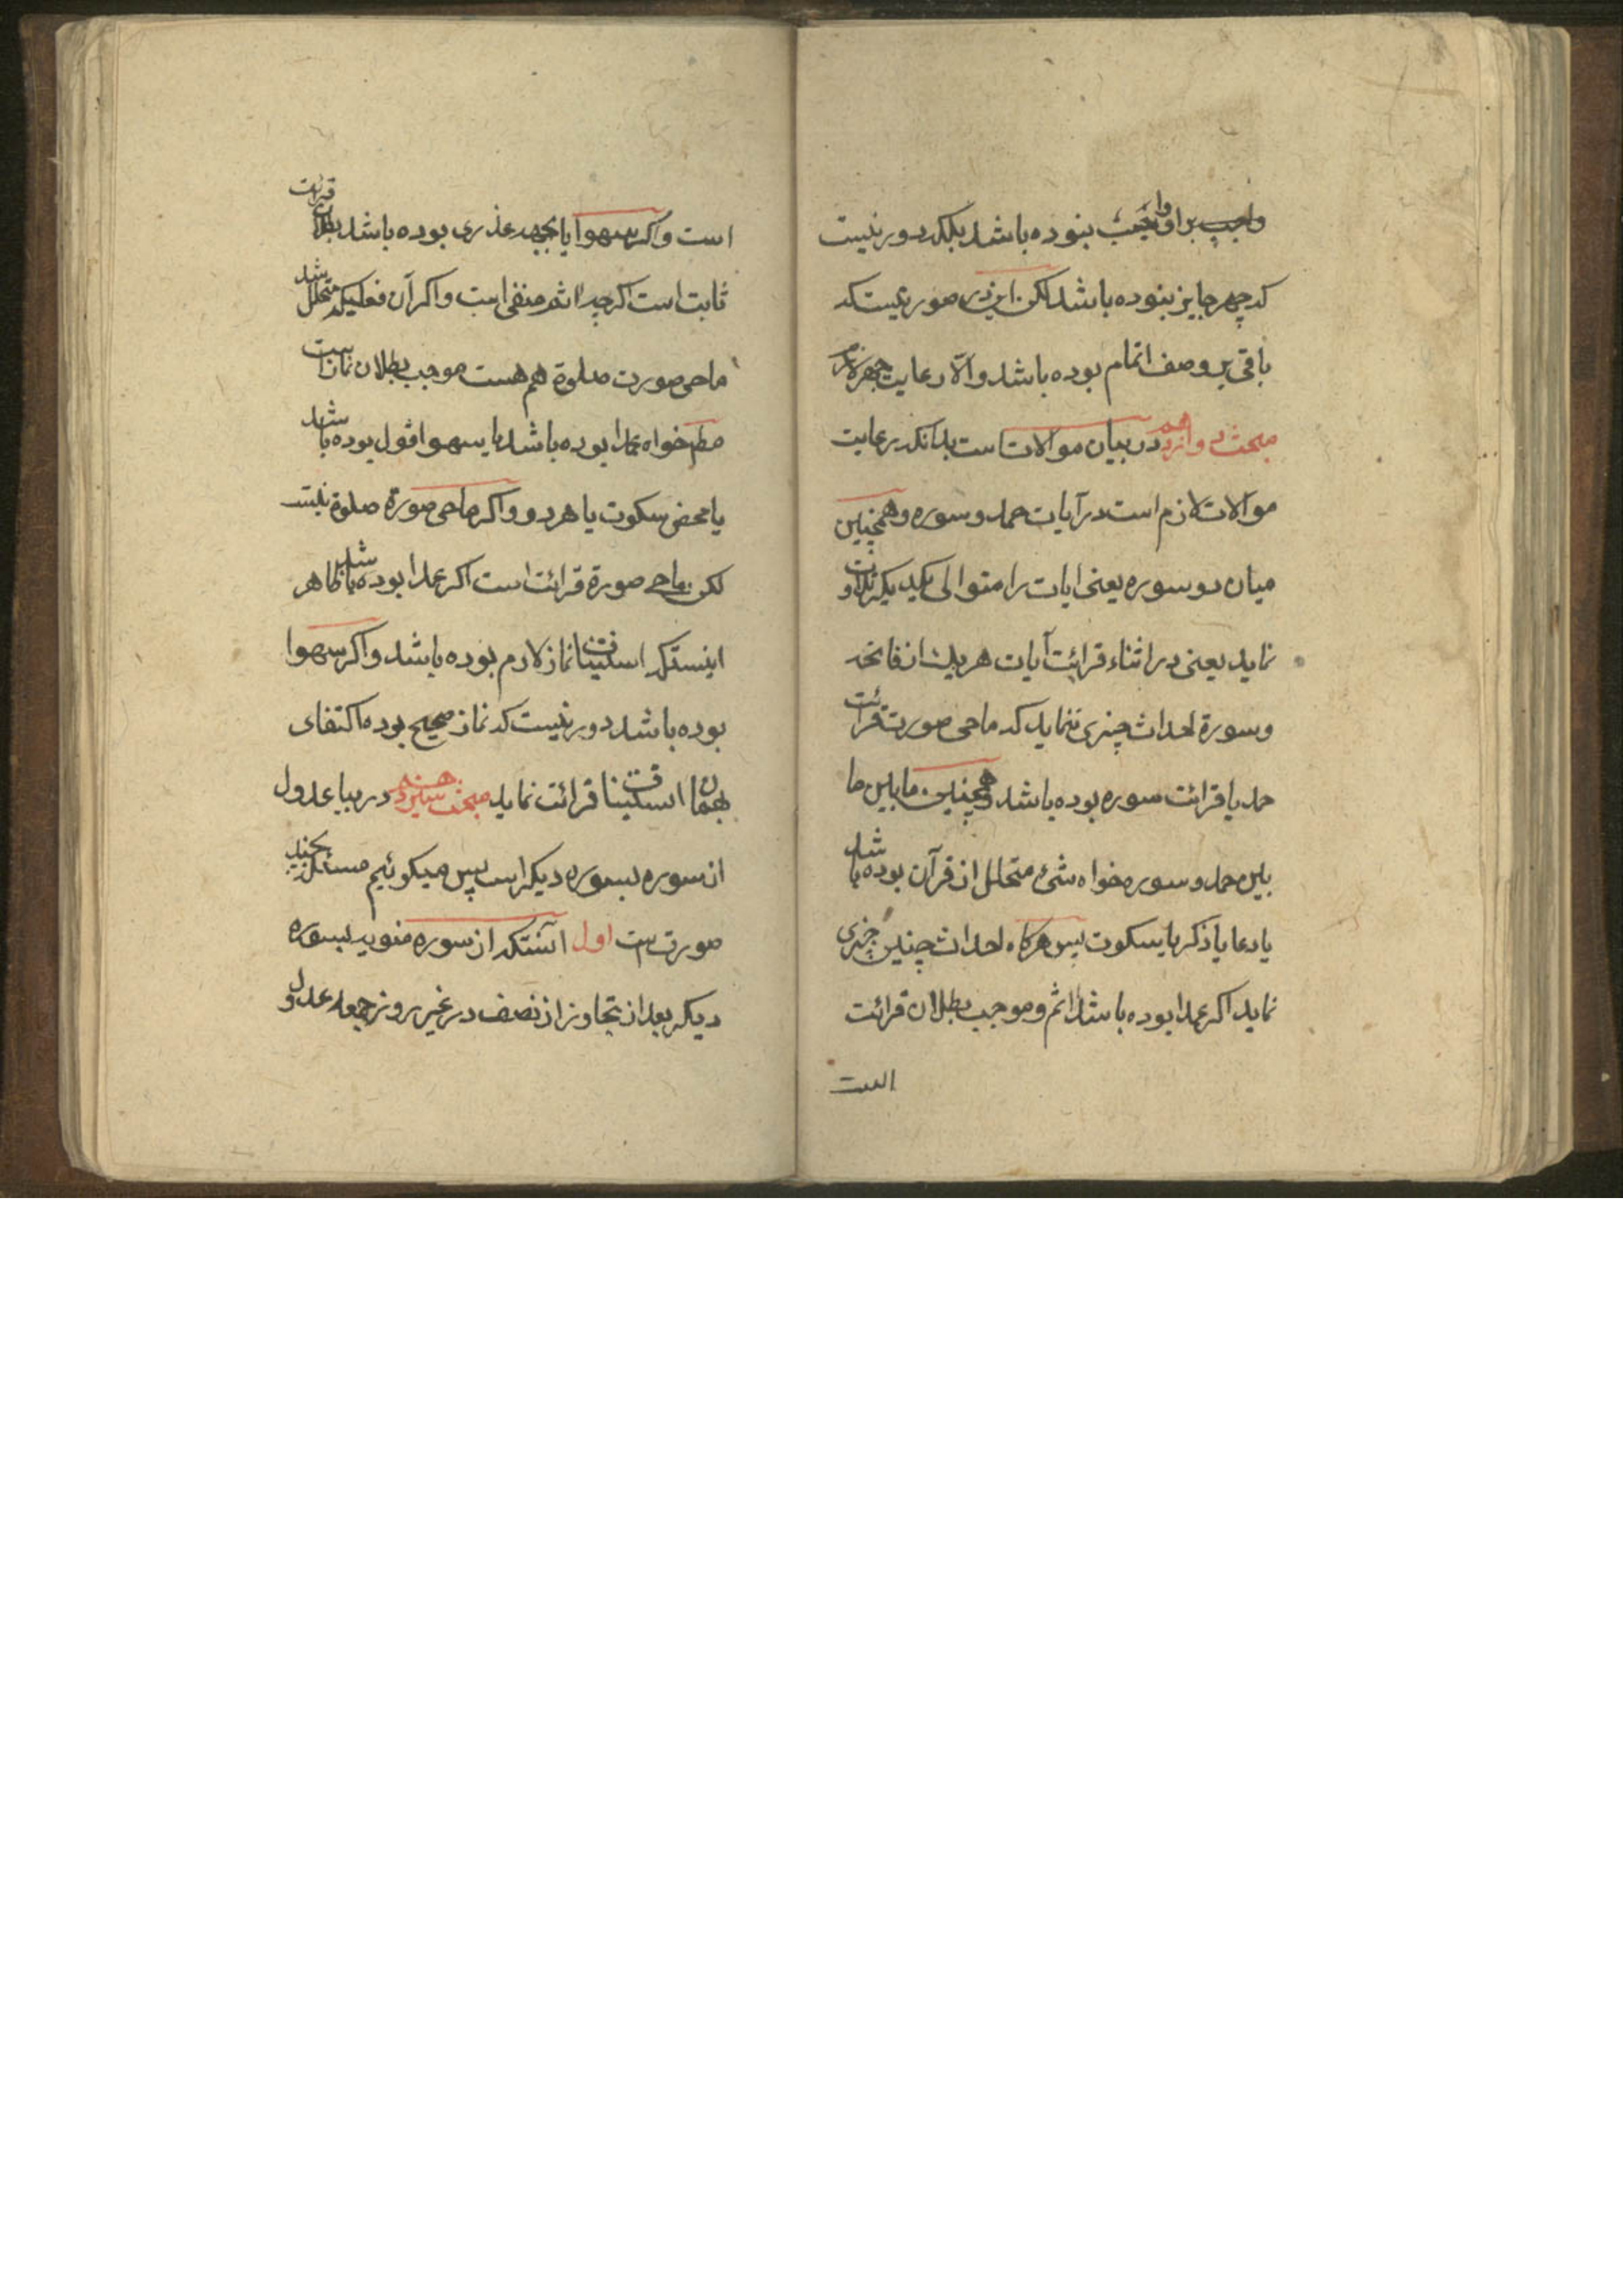 واجب بر او واجب نبوده باشد بلکه دور نیست
که جهر جایز نبوده باشد لکن این در صورتیست که
باقی بر وصف اتمام بوده باشد والّا رعایت جهر لازم
مبحث دوازدهم در بیان موالات است بدانکه رعایت
موالات لازم است در آیات حمد و سوره و همچنین
میان دو سوره یعنی ایات را متوالی یکدیکر تلاوت
نماید یعنی در اثناء قرائت آیات هر یك از فاتحه
و سورة احداث چیزی ننماید که ماحی صورت قرائت
حمد یا قرائت سوره بوده باشد و همچنین ما بین ما
بین حمد و سوره خواه شیء متخلل از قرآن بوده باشد
یا دعا یا ذکر یا سکوت پس هرکاه احداث چنین چیزی
نماید اکر عمدا بوده باشد اثم و موجب بطلان قرائت
است
است و اکر سهوا یا بجهة عذری بوده باشد بطلان قرائت
ثابت است اکرچه اثم منفی است و اکر آن فعلیکه متخلل شد
ماحی صورت صلوة هم هست موجب بطلان نماز است
مطم خواه عمدا بوده باشد یا سهوا قول بوده باشد
یا محض سکوت یا هر دو و اکر ماحی صورة صلوة نیست
لکن ماحی صورة قرائت است اکر عمدا بوده باشد ظاهر
اینستکه استیناف نماز لازم بوده باشد و اکر سهوا
بوده باشد دور نیست که نماز صحیح بوده اکتفای
بهمان استیناف قرائت نماید مبحث سیزدهم در بیا عدول
از سوره بسوره دیکر است پس میکوئیم مسئله بچند
صورت است اول آنستکه از سوره منویه بسوره
دیکر بعد از تجاوز از نصف در غیر روز جمعه عدول و